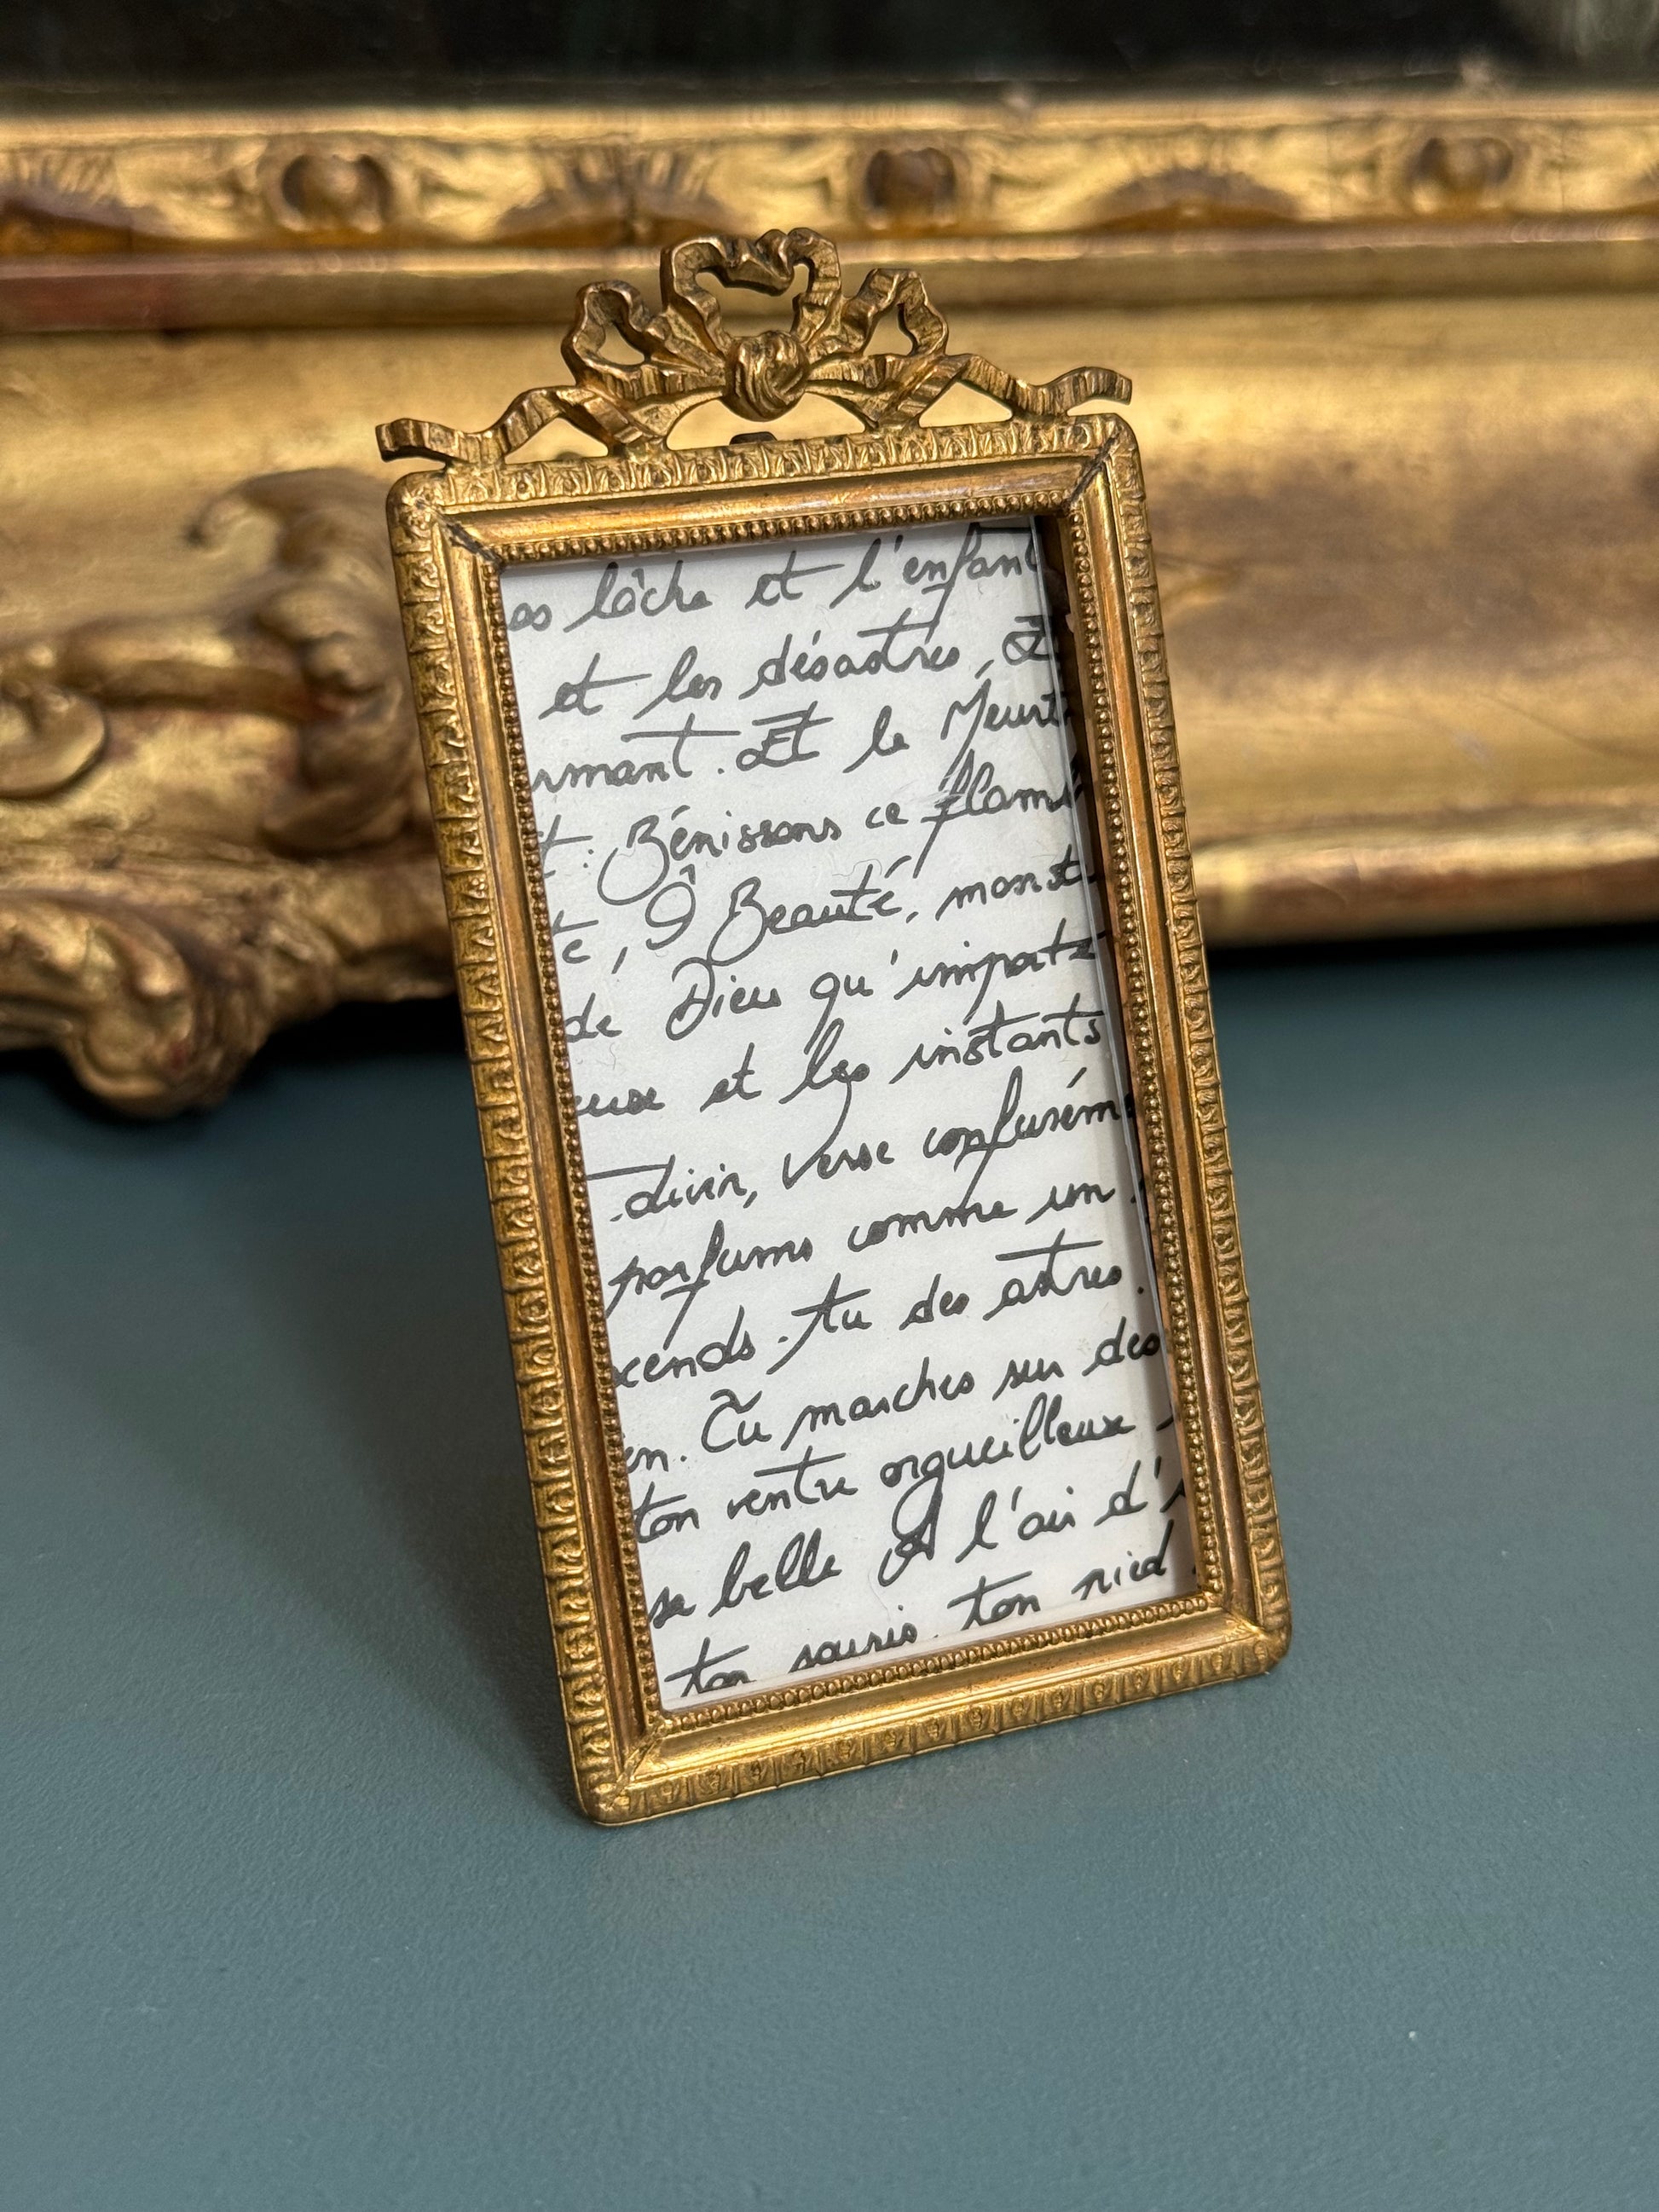 os lâche et l'enfant
et les désastres, Et
rmant. Et le Meurt
t: Bénissons ce flamb
té, Ô Beauté, monst
de Dieu qu'importe
euse et les instants
divin, verse confusém
parfums comme un
scends-tu des astres.
en. Tu marches sur des
ton ventre orgueilleux
se belle A l'air d'
ton souris, ton pied